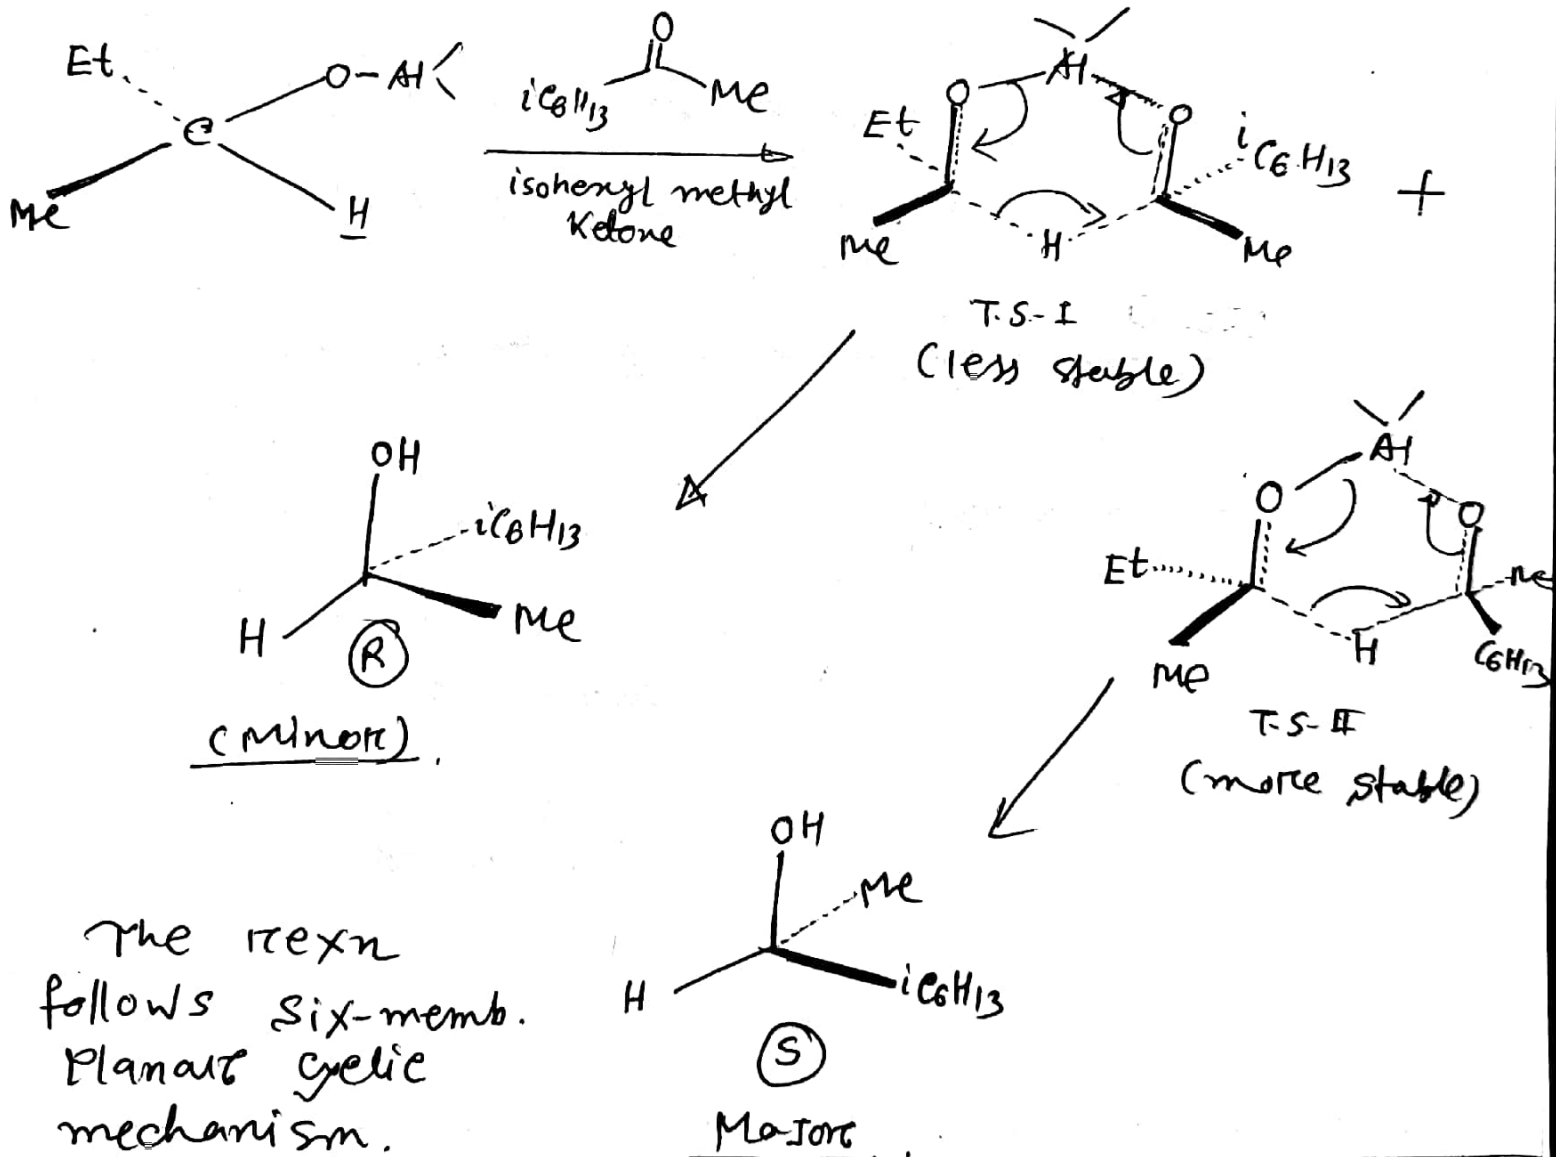 Et
O-Al
C
Me
H
O
iC6H13
Me
isohexyl methyl
Ketone
Al
O
O
Et
iC6H13
Me
H
Me
+
T.S-I
(less stable)
OH
iC6H13
H
Me
R
(Minor).
Al
O
O
Et
Me
Me
H
C6H13
T-S-II
(more stable)
OH
Me
H
iC6H13
S
Major
The rexn
follows six-memb.
Planar cyclic
mechanism.